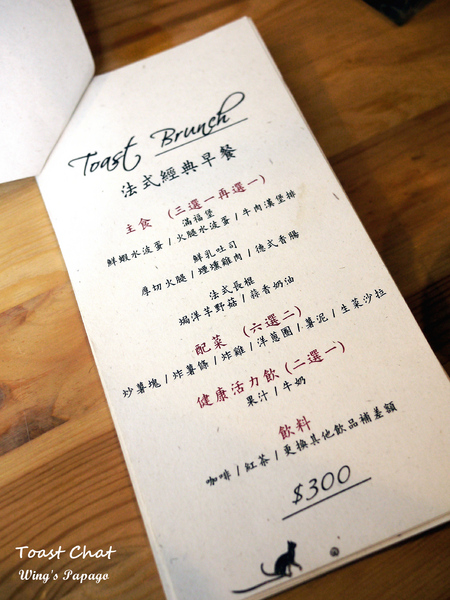 Toast Brunch
法式經典早餐
主食 (三選一再選一)
滿福堡
鮮蝦水波蛋 / 火腿水波蛋 / 牛肉漢堡排
鮮乳吐司
厚切火腿 / 煙燻雞肉 / 德式香腸
法式長棍
焗洋芋野菇 / 蒜香奶油
配菜 (六選二)
炒薯塊 / 炸薯條 / 炸雞 / 洋蔥圈 / 薯泥 / 生菜沙拉
健康活力飲 (二選一)
果汁 / 牛奶
飲料
咖啡 / 紅茶 / 更換其他飲品補差額
$300
Toast Chat
Wing's Papago